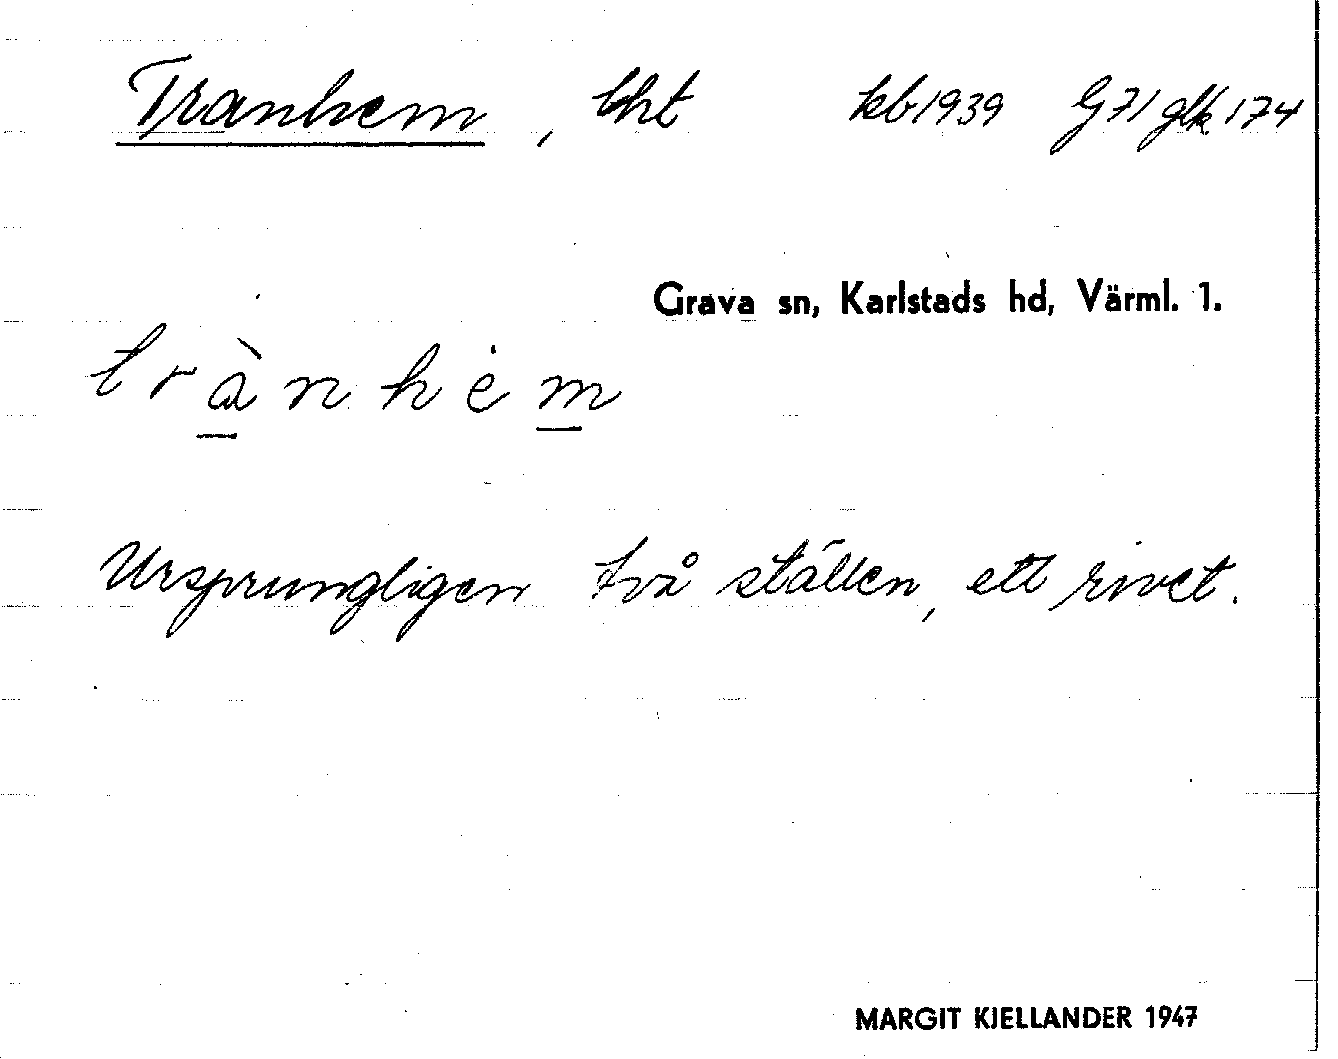 Tranhem, lht kb 1939 G 71 glk 174
Grava sn, Karlstads hd, Värml. 1.
trànhėm
Ursprungligen två ställen, ett rivet.
MARGIT KJELLANDER 1947